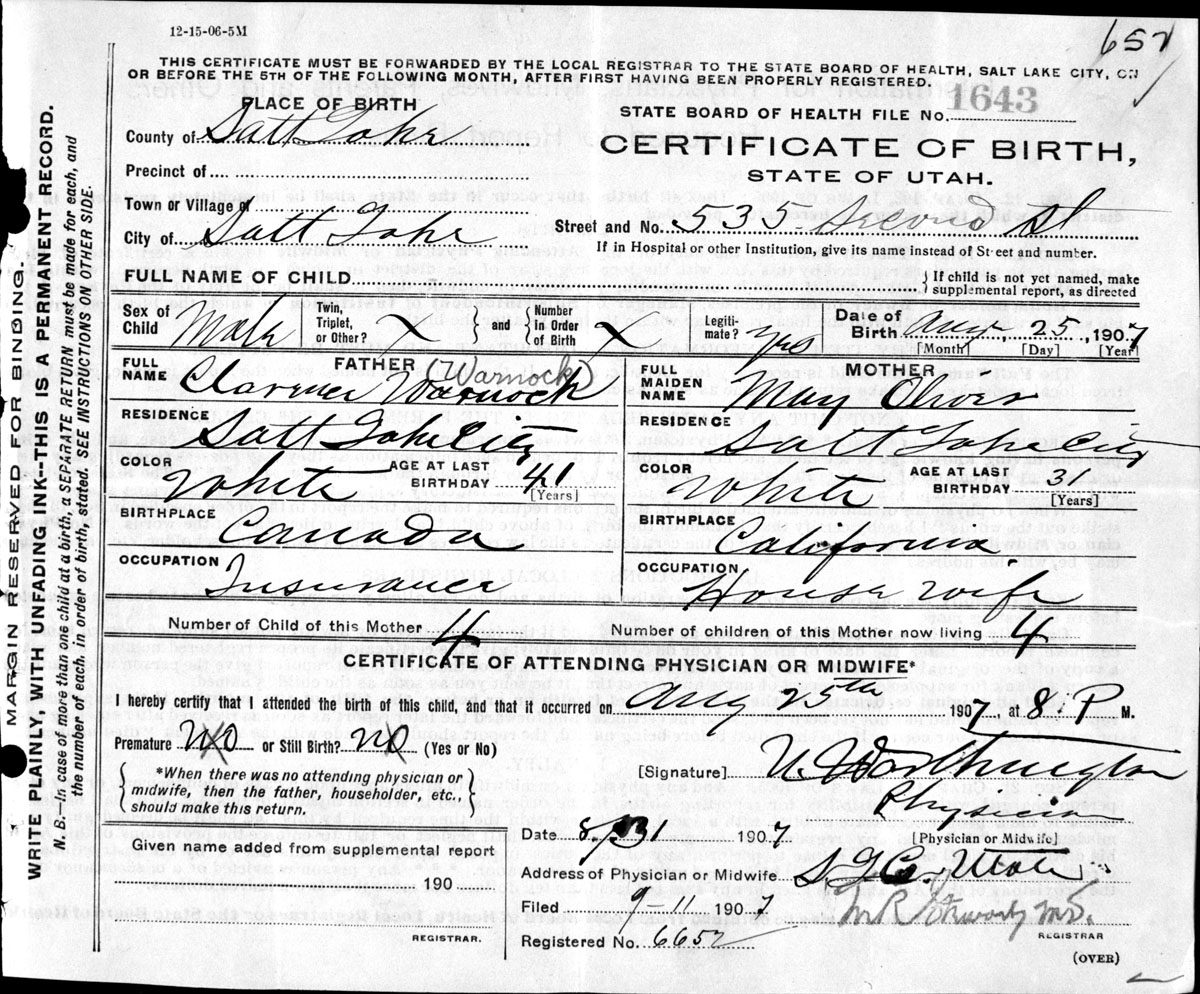 12-15-06-5M
657
THIS CERTIFICATE MUST BE FORWARDED BY THE LOCAL REGISTRAR TO THE STATE BOARD OF HEALTH, SALT LAKE CITY, ON
OR BEFORE THE 5TH OF THE FOLLOWING MONTH, AFTER FIRST HAVING BEEN PROPERLY REGISTERED.
PLACE OF BIRTH
STATE BOARD OF HEALTH FILE No. 1643
County of Salt Lake
CERTIFICATE OF BIRTH,
Precinct of
STATE OF UTAH.
Town or Village of
City of Salt Lake Street and No. 535 Second St
If in Hospital or other Institution, give its name instead of Street and number.
FULL NAME OF CHILD } If child is not yet named, make supplemental report, as directed
Sex of Child Male Twin, Triplet, or Other? X and { Number In Order of Birth X Legitimate? yes Date of Birth Aug 25, 1907
[Month] [Day] [Year]
FATHER (Warnock)
FULL NAME Clarence Warnock
MOTHER
FULL MAIDEN NAME May
RESIDENCE Salt Lake City
RESIDENCE Salt Lake City
COLOR White AGE AT LAST BIRTHDAY 41 [Years]
COLOR White AGE AT LAST BIRTHDAY 36 [Years]
BIRTHPLACE Canada
BIRTHPLACE California.
OCCUPATION Insurance
OCCUPATION House wife
Number of Child of this Mother 4 Number of children of this Mother now living 4
CERTIFICATE OF ATTENDING PHYSICIAN OR MIDWIFE*
I hereby certify that I attended the birth of this child, and that it occurred on Aug 25th 1907 at 8. P M.
Premature No or Still Birth? No (Yes or No)
{ *When there was no attending physician or midwife, then the father, householder, etc., should make this return. }
[Signature] Worthington
Physician
[Physician or Midwife]
Date 8/31 1907
Given name added from supplemental report
Address of Physician or Midwife S.L.C. Utah
190
Filed 9-11 1907 M.D.
REGISTRAR.
REGISTRAR
Registered No. 6657
(OVER)
MARGIN RESERVED FOR BINDING.
WRITE PLAINLY, WITH UNFADING INK--THIS IS A PERMANENT RECORD.
N. B.—In case of more than one child at a birth, a SEPARATE RETURN must be made for each, and
the number of each, in order of birth, stated. SEE INSTRUCTIONS ON OTHER SIDE.